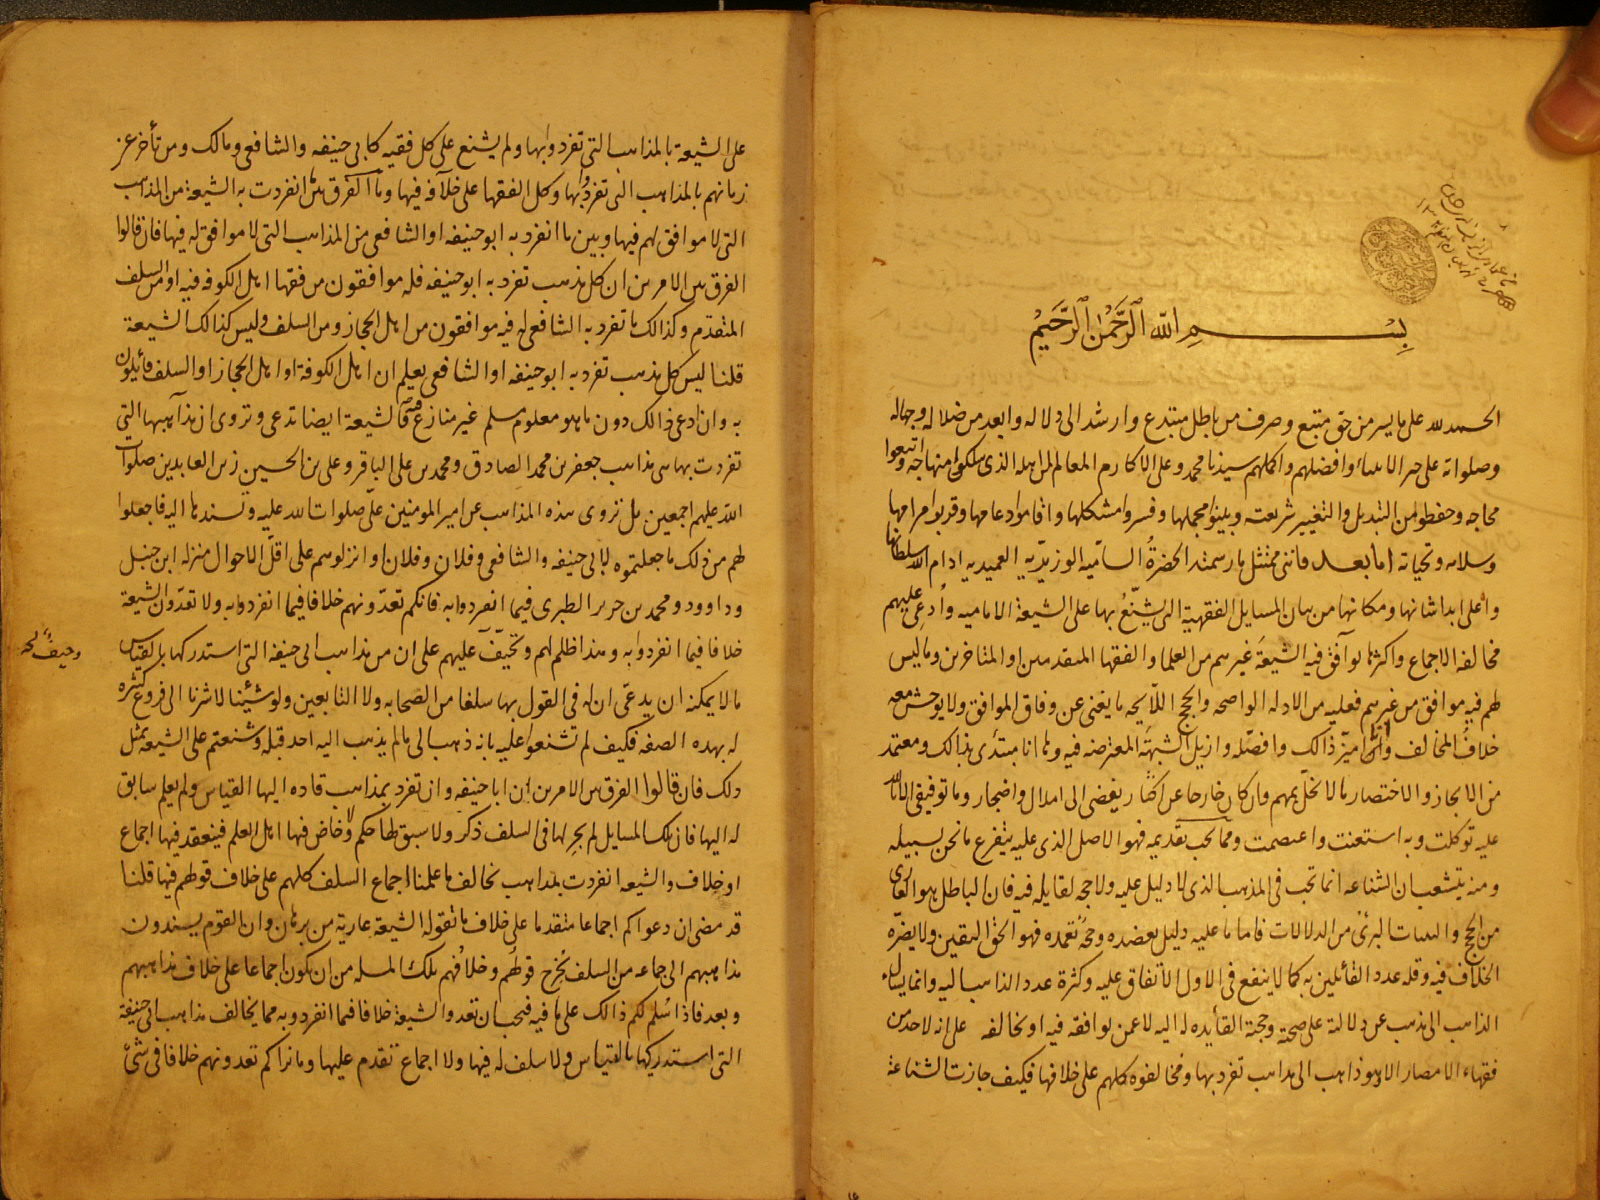 بسم الله الرحمن الرحيم
الحمد لله على ما يسر من حق متبع وصرف من باطل مبتدع وارشد الى دلاله وابعد من ضلاله وجهاله
وصلواته على خير الانبياء وافضلهم واكملهم سيدنا محمد وعلى الاكارم المعالم من اهله الذين سلكوا منهاجه واتبعوا
محاجه وحفظوا من التبديل والتغيير شريعته وبينوا مجملها وفسروا مشكلها واقاموا دعامها وقربوا مرامها
وسلامه وتحياته اما بعد فانني ممتثل ما رسمته الحضرة الساميه الوزيريه العميديه ادام الله سلطانها
واعلى ابدا شانها ومكانها من بيان المسايل الفقهية التي يشنع بها على الشيعة الاماميه وادعى عليهم
مخالفه الاجماع واكثرها يوافق فيه الشيعة غيرهم من العلما والفقها المتقدمين او المتاخرين وما ليس
لهم فيه موافق من غيرهم فعليه من الادله الواضحه والحجج اللايحه ما يغني عن وفاق الموافق ولا يوحش معه
خلاف المخالف وان اميز ذالك وافصله وازيل الشبهة المعترضه فيه وها انا مبتدى بذالك ومعتمد
من الايجاز والاختصار ما لا يخل بمهم وان كان خارجا عن اكثار يفضى الى املال واضجار وما توفيقي الا بالله
عليه توكلت وبه استعنت واعتصمت ومما يجب تقديمه فهو الاصل الذى عليه يتفرع ما نحن بسبيله
ومنه يتشعب ان الشناعه انما تجب فى المذهب الذى لا دليل عليه ولا حجه لقايله فيه فان الباطل هو العارى
من الحجج والبينات البرئ من الدلالات فاما ما عليه دليل يعضده وحجة تعمده فهو الحق اليقين ولا يضره
الخلاف فيه وقله عدد القائلين به كما لا ينفع فى الاول الاتفاق عليه وكثرة عدد الذاهب اليه وانما يسئل
الذاهب الى مذهب عن دلالته على صحته وحجته القايده له اليه لا عمن يوافقه فيه او يخالفه على انه لا احد من
فقهاء الامصار الا وهو ذاهب الى مذاهب تفرد بها ومخالفوه كلهم على خلافها فكيف جازت الشناعة
على الشيعة بالمذاهب التى تفردوا بها ولم يشنع على كل فقيه كابى حنيفه والشافعى ومالك ومن تأخر عن
زمانهم بالمذاهب التى تفردوا بها وكل الفقها على خلافه فيها وما الفرق بين ما انفردت به الشيعة من المذاهب
التى لا موافق لهم فيها وبين ما انفرد به ابو حنيفه او الشافعى من المذاهب التى لا موافق له فيها فان قالوا
الفرق بين الامرين ان كل مذهب تفرد به ابو حنيفه فله موافقون من فقها اهل الكوفه فيه او من السلف
المتقدم وكذالك ما تفرد به الشافعى له فيه موافقون من اهل الحجاز ومن السلف وليس كذالك الشيعة
قلنا ليس كل مذهب تفرد به ابو حنيفه او الشافعى يعلم ان اهل الكوفة او اهل الحجاز او السلف قائلون
به وان ادعى ذالك دون ما هو معلوم مسلم غير منازع فيه فالشيعة ايضا تدعى وتروى ان مذاهبها التى
تفردت بها هى مذاهب جعفر بن محمد الصادق ومحمد بن على الباقر وعلى بن الحسين زين العابدين صلوات
الله عليهم اجمعين بل تروى هذه المذاهب عن امير المومنين على صلوات الله عليه وتسندها اليه فاجعلوا
لهم من ذلك ما جعلتموه لابى حنيفه والشافعى وفلان وفلان او انزلوهم على اقل الاحوال منزله ابن حنبل
وداوود ومحمد بن جرير الطبرى فيما انفردوا به فانكم تعدونهم خلافا فيما انفردوا به ولا تعدون الشيعة
خلافا فيما انفردوا به وهذا ظلم لهم وتحيف عليهم على ان من مذاهب ابى حنيفه التى استدركها بالقياس
وحيف
ما لا يمكنه ان يدعى ان له فى القول بها سلفا من الصحابه ولا التابعين ولو شئنا لاشرنا الى فروع كثيره
له بهذه الصفه فكيف لم تشنعوا عليه بانه ذهب الى ما لم يذهب اليه احد قبله وشنعتم على الشيعه بمثل
ذلك فان قالوا الفرق بين الامرين ان ابا حنيفه وان تفرد بمذاهب قاده اليها القياس ولم يعلم سابق
له اليها فان تلك المسايل لم يجر لها فى السلف ذكر ولا سبق لها حكم ولا خاض فيها اهل العلم فينعقد فيها اجماع
او خلاف والشيعه انفردت بمذاهب تخالف ما علمنا اجماع السلف كلهم على خلاف قولهم فيها قلنا
قد مضى ان دعواكم اجماعا متقدما على خلاف ما تقوله الشيعة عارية من برهان وان القوم يسندون
مذاهبهم الى جماعه من السلف يخرج قولهم وخلافهم تلك المسله من ان يكون اجماعا على خلاف مذاهبهم
وبعد فاذا سلم لكم ذالك على ما فيه فيجب ان تعدوا الشيعة خلافا فيما انفردوا به مما يخالف مذاهب ابى حنيفة
التى استدركها بالقياس ولا سلف له فيها ولا اجماع تقدم عليها وما نراكم تعدونهم خلافا فى شئ